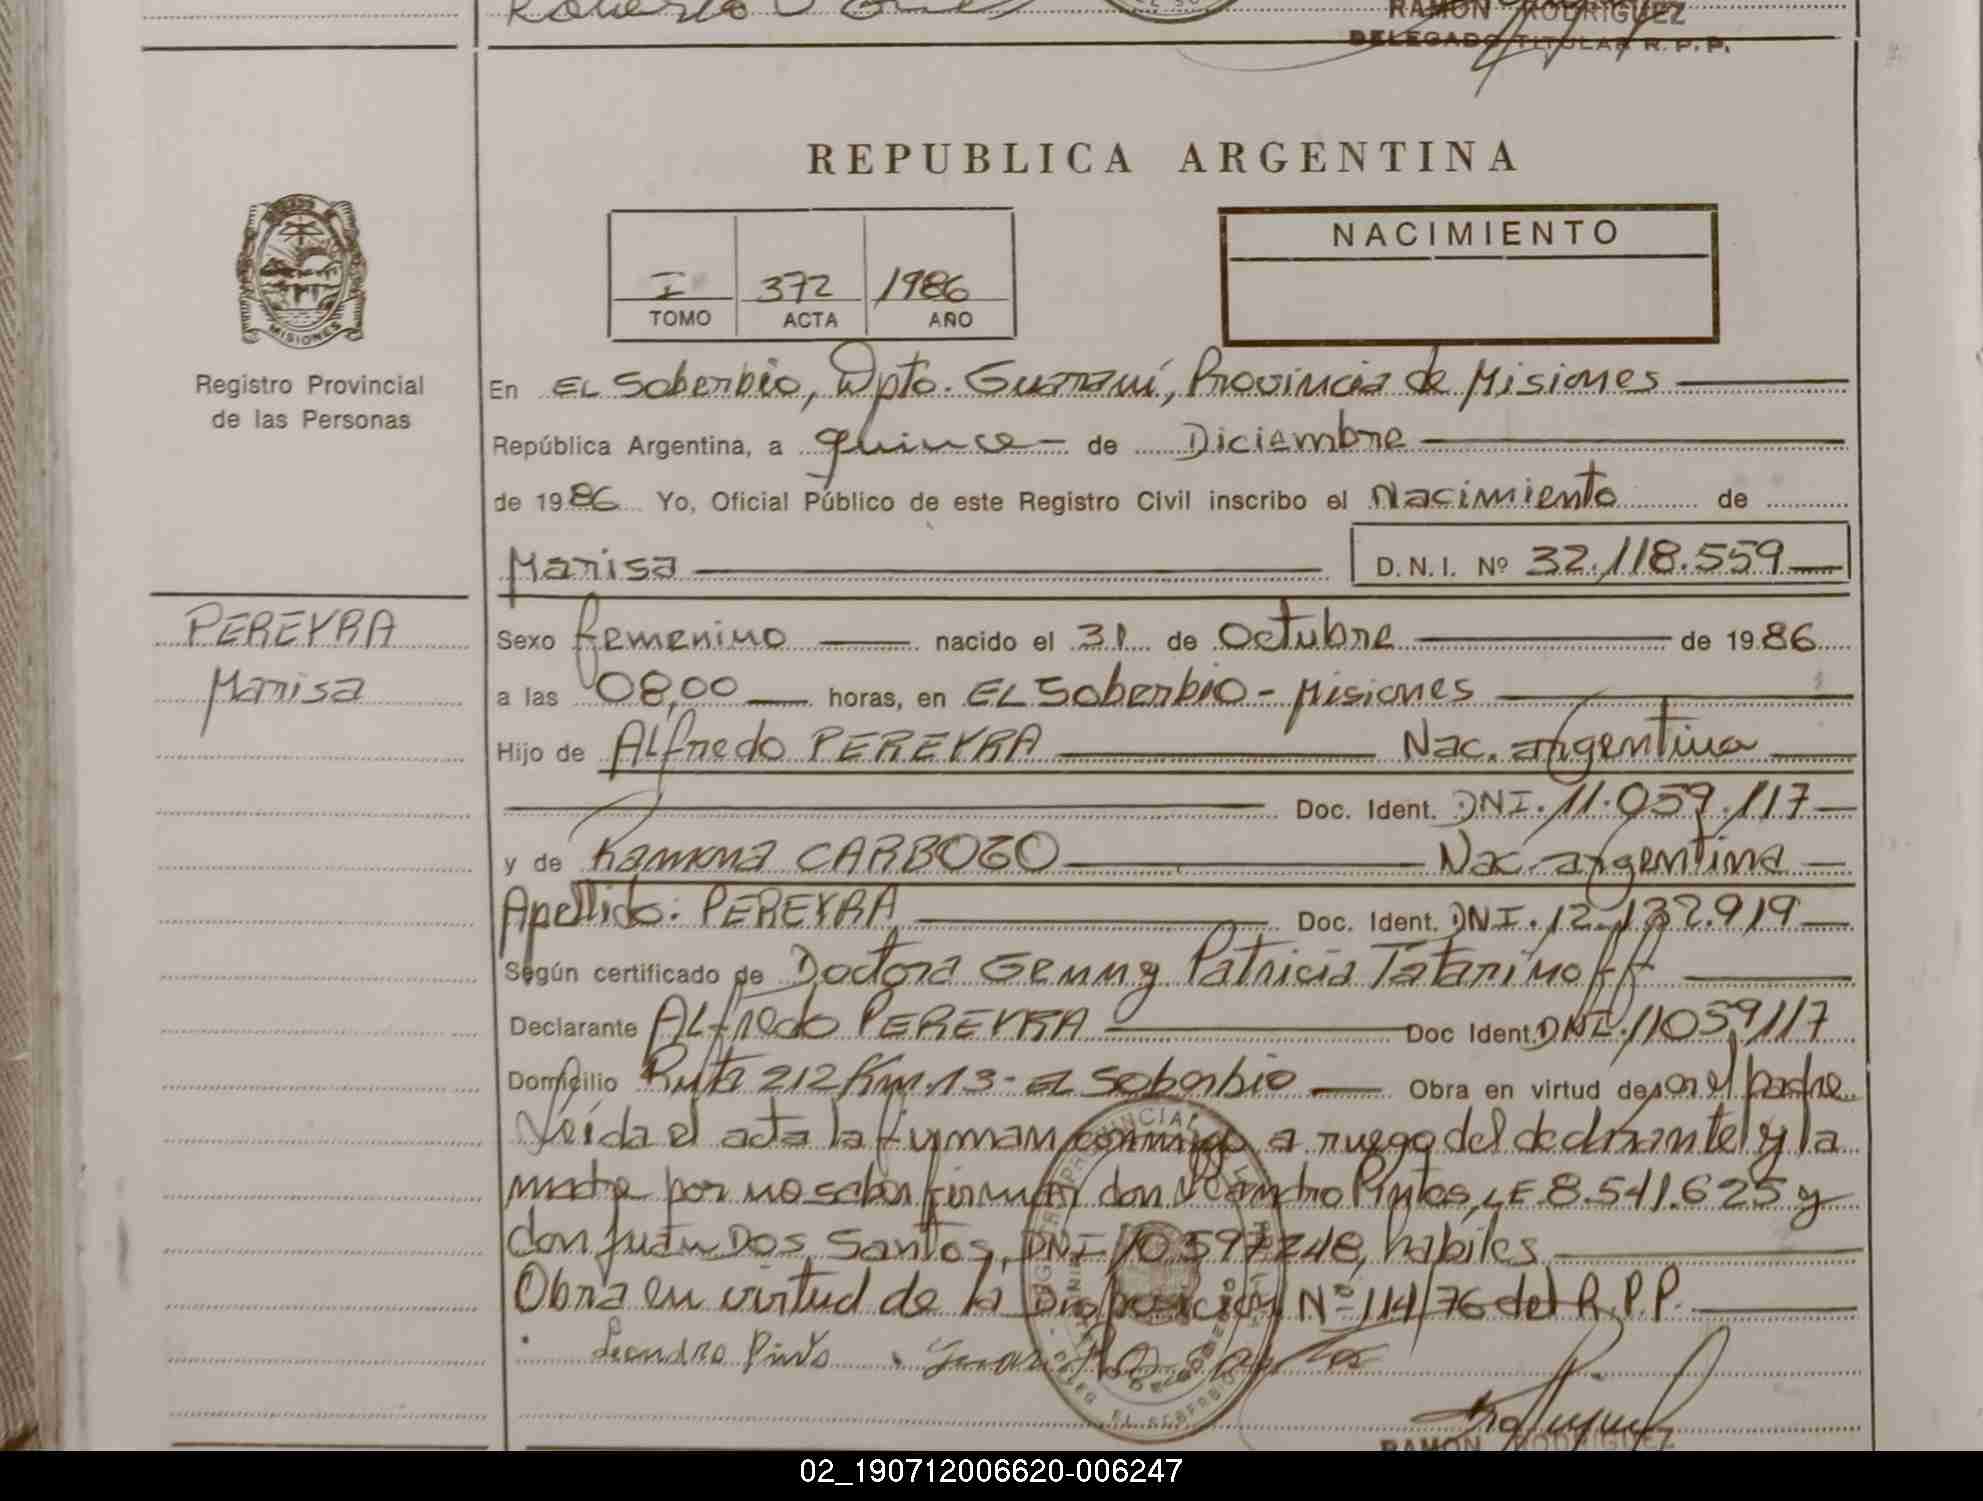 RAMON RODRIGUEZ
DELEGADO TITULAR R.P.P.
REPUBLICA ARGENTINA
MISIONES
Registro Provincial
de las Personas
I 372 1986
TOMO ACTA AÑO
NACIMIENTO
En EL Soberbio, Dpto. Guaraní, Provincia de Misiones
República Argentina, a quince de Diciembre
de 1986 Yo, Oficial Público de este Registro Civil inscribo el Nacimiento de
Marisa D.N.I. Nº 32.118.559
PEREYRA
Marisa
Sexo femenino nacido el 31 de Octubre de 1986
a las 08,00 horas, en EL Soberbio - Misiones
Hijo de Alfredo PEREYRA Nac. argentina
Doc. Ident. DNI. 11.059.117
y de Ramona CARBOZO Nac. argentina
Apellido: PEREYRA Doc. Ident. DNI. 12.132.919
Según certificado de Doctora Gemmy Patricia Tatarinoff
Declarante ALfredo PEREYRA Doc Ident. DNI. 11059117
Domicilio Ruta 212 Km. 13 - EL Soberbio Obra en virtud de ser el padre
Leída el acta la firman conmigo a ruego del declarante y la
madre por no saber firmar don Leandro Pintos, LE 8.541.625 y
don Juan Dos Santos, DNI 10597248, habiles
Obra en virtud de la Disposición Nº 114/76 del R.P.P.
Leandro Pinto
RAMON RODRIGUEZ
02_190712006620-006247